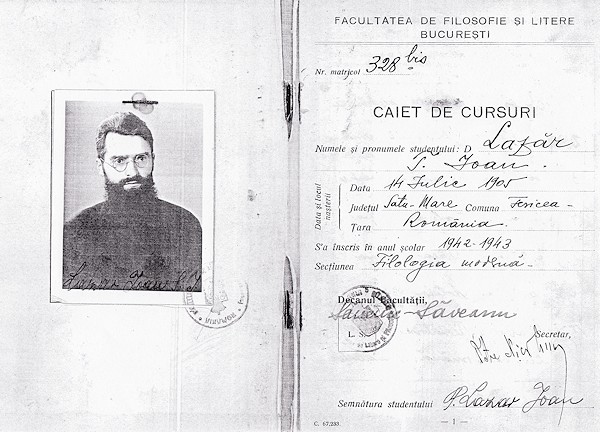 FACULTATEA DE FILOSOFIE ȘI LITERE
BUCUREȘTI
Nr. matricol 328 bis
CAIET DE CURSURI
Numele și pronumele studentului: D Lazăr
P. Ioan.
Data și locul nașterii
Data 14 Iulie 1905
Județul Satu-Mare Comuna
Țara România.
S'a înscris în anul școlar 1942-1943
Secțiunea Filologia modernă-
Decanul Facultății,
L. S.
Secretar,
Semnătura studentului P. Lazar Ioan
C. 67.283.
— 1 —